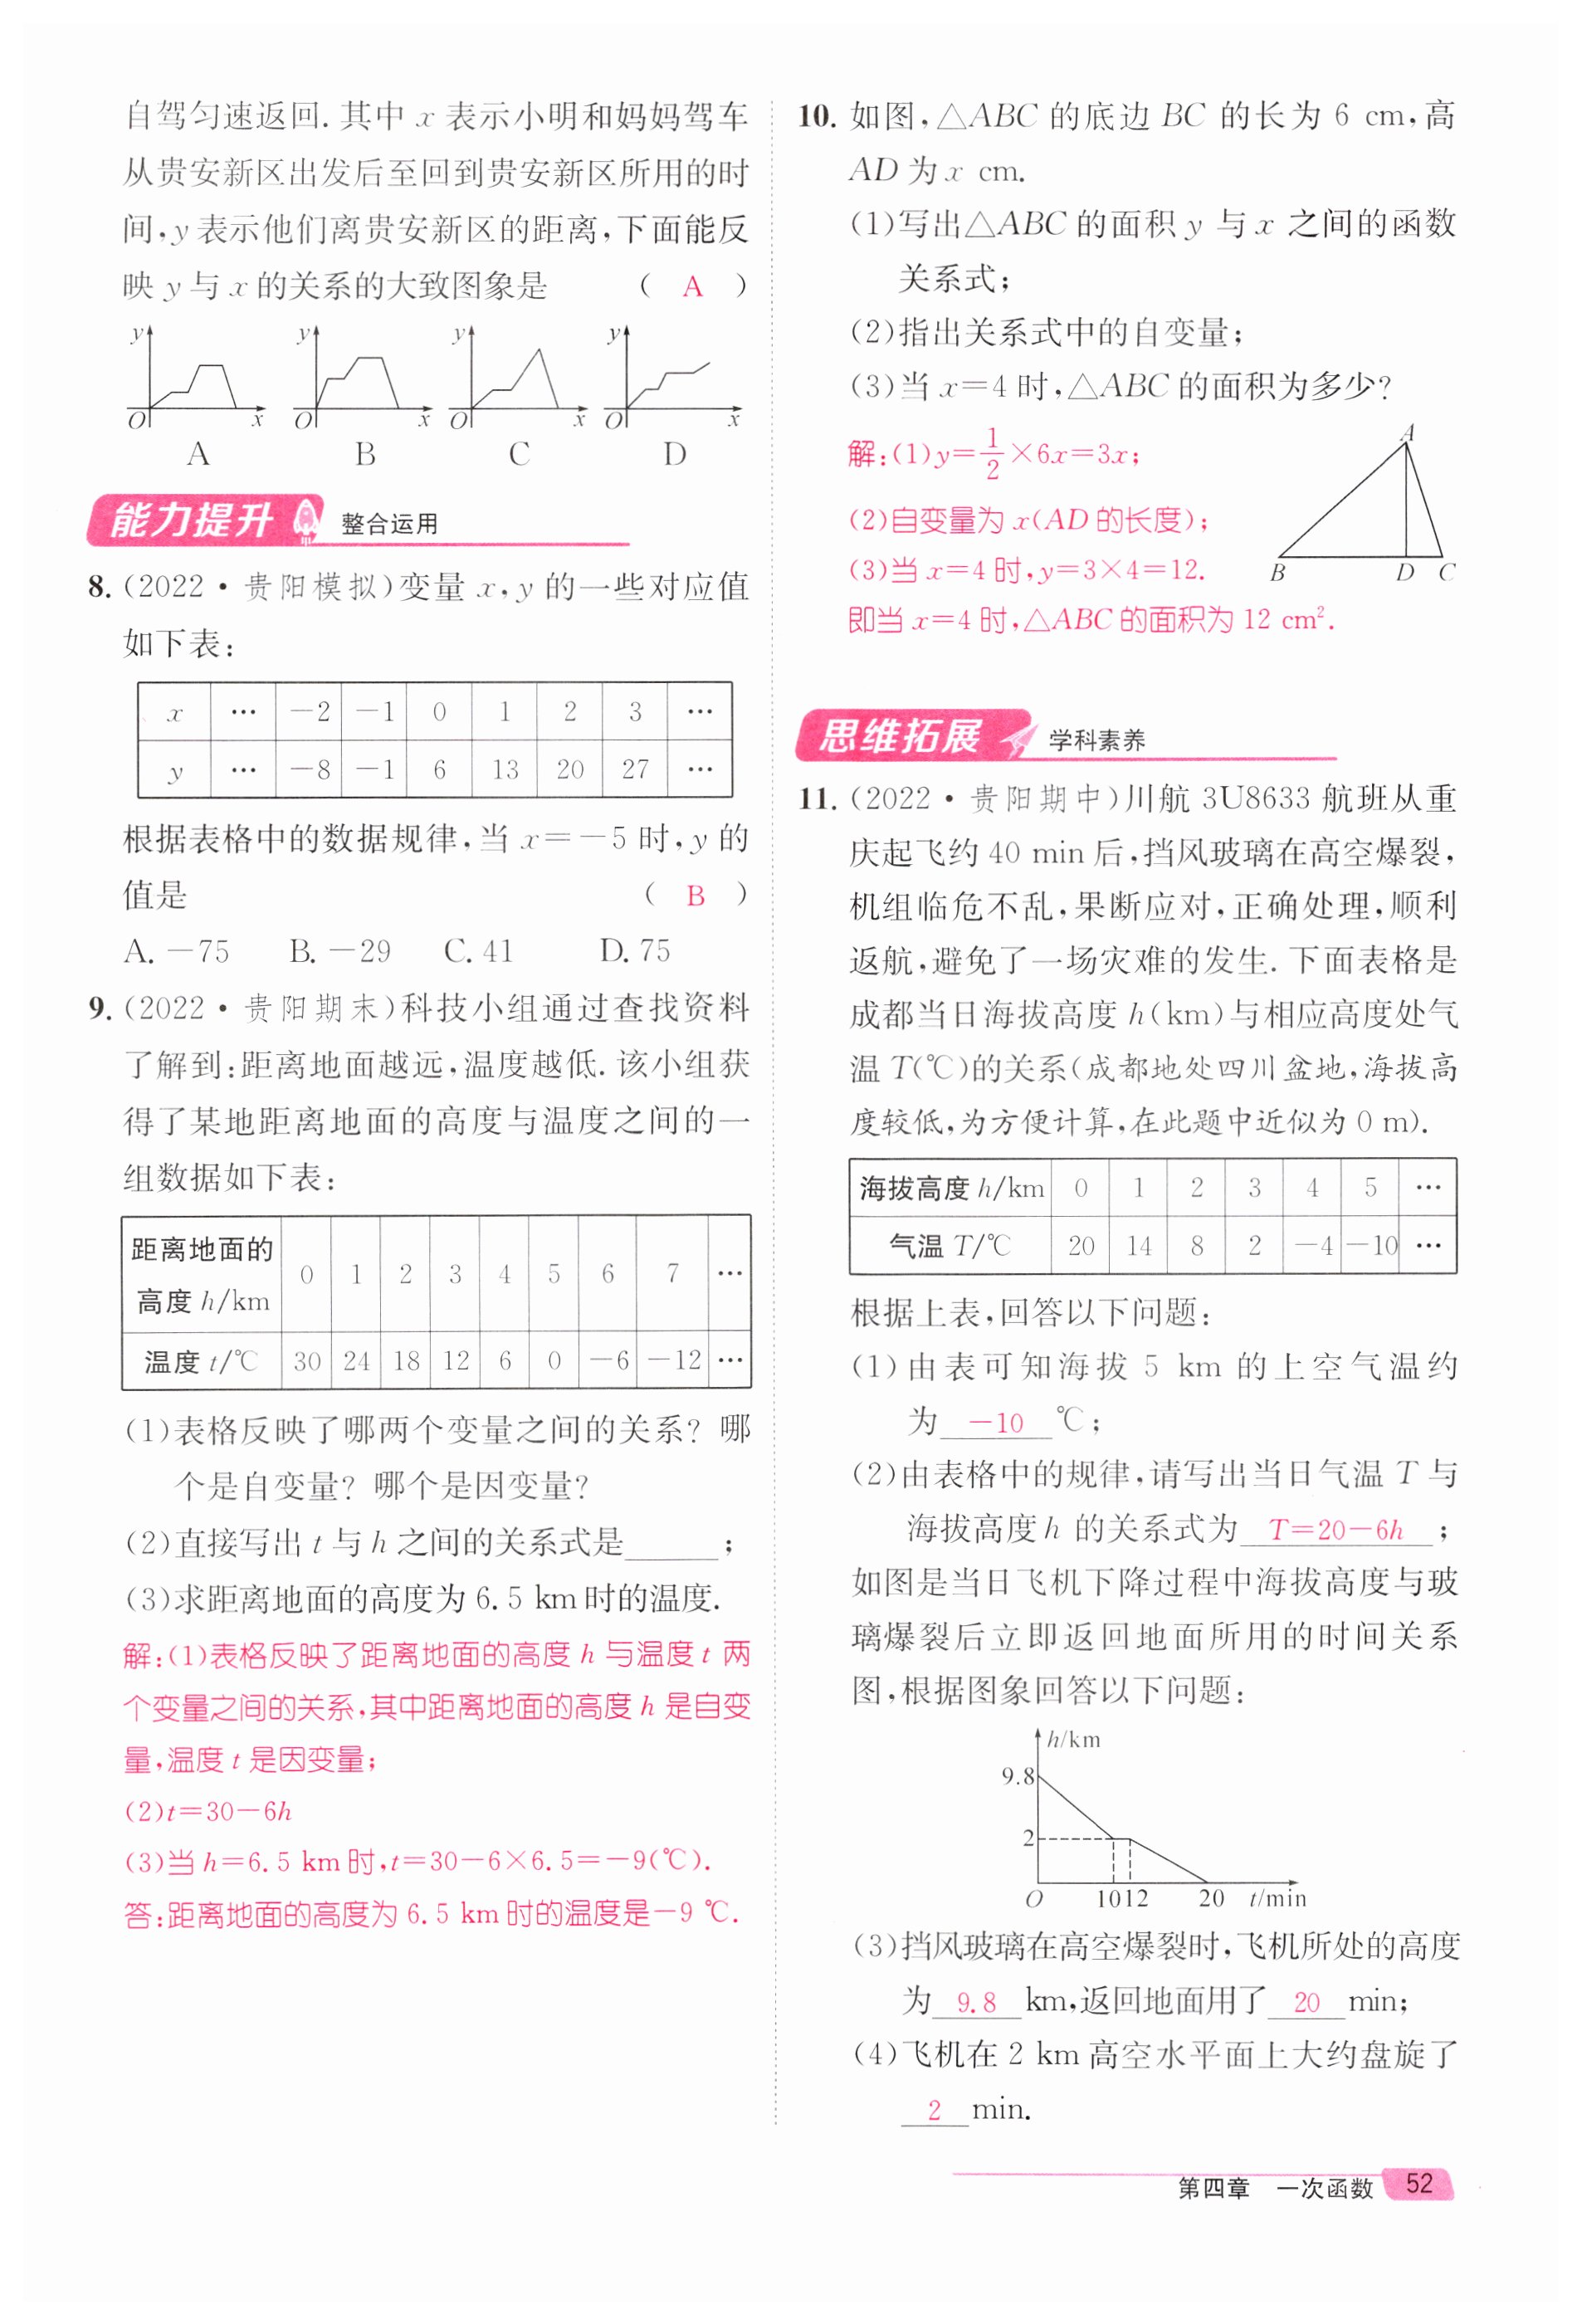 自驾匀速返回.其中 x 表示小明和妈妈驾车
从贵安新区出发后至回到贵安新区所用的时
间,y 表示他们离贵安新区的距离,下面能反
映 y 与 x 的关系的大致图象是 ( A )
y y y y
O x O x O x O x
A B C D
能力提升 整合运用
8. (2022·贵阳模拟)变量 x,y 的一些对应值
如下表:
x … −2 −1 0 1 2 3 …
y … −8 −1 6 13 20 27 …
根据表格中的数据规律,当 x=−5 时,y 的
值是 ( B )
A. −75 B. −29 C. 41 D. 75
9. (2022·贵阳期末)科技小组通过查找资料
了解到:距离地面越远,温度越低.该小组获
得了某地距离地面的高度与温度之间的一
组数据如下表:
距离地面的
高度 h/km 0 1 2 3 4 5 6 7 …
温度 t/℃ 30 24 18 12 6 0 −6 −12 …
(1)表格反映了哪两个变量之间的关系? 哪
个是自变量? 哪个是因变量?
(2)直接写出 t 与 h 之间的关系式是______;
(3)求距离地面的高度为 6.5 km时的温度.
解:(1)表格反映了距离地面的高度 h 与温度 t 两
个变量之间的关系,其中距离地面的高度 h 是自变
量,温度 t 是因变量;
(2)t=30−6h
(3)当 h=6.5 km时,t=30−6×6.5=−9(℃).
答:距离地面的高度为 6.5 km时的温度是−9 ℃.
10. 如图,△ABC 的底边 BC 的长为 6 cm,高
AD 为 x cm.
(1)写出△ABC 的面积 y 与 x 之间的函数
关系式;
(2)指出关系式中的自变量;
(3)当 x=4 时,△ABC 的面积为多少?
解:(1)y=1/2×6x=3x;
(2)自变量为 x(AD 的长度);
(3)当 x=4 时,y=3×4=12.
即当 x=4 时,△ABC 的面积为 12 cm².
A
B D C
思维拓展 学科素养
11. (2022·贵阳期中)川航 3U8633 航班从重
庆起飞约 40 min 后,挡风玻璃在高空爆裂,
机组临危不乱,果断应对,正确处理,顺利
返航,避免了一场灾难的发生.下面表格是
成都当日海拔高度 h(km)与相应高度处气
温 T(℃)的关系(成都地处四川盆地,海拔高
度较低,为方便计算,在此题中近似为 0 m).
海拔高度 h/km 0 1 2 3 4 5 …
气温 T/℃ 20 14 8 2 −4 −10 …
根据上表,回答以下问题:
(1)由表可知海拔 5 km 的上空气温约
为 −10 ℃;
(2)由表格中的规律,请写出当日气温 T 与
海拔高度 h 的关系式为 T=20−6h ;
如图是当日飞机下降过程中海拔高度与玻
璃爆裂后立即返回地面所用的时间关系
图,根据图象回答以下问题:
h/km
9.8
2
O 10 12 20 t/min
(3)挡风玻璃在高空爆裂时,飞机所处的高度
为 9.8 km,返回地面用了 20 min;
(4)飞机在 2 km 高空水平面上大约盘旋了
2 min.
第四章 一次函数 52